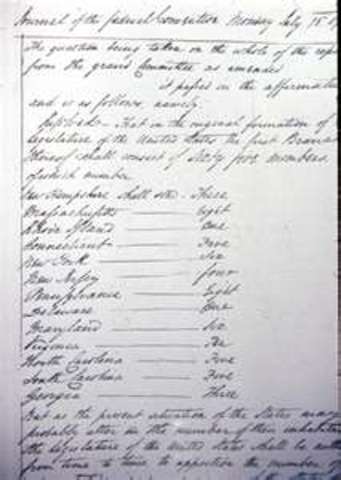 Journal of the federal Convention Monday July 16
the question being taken on the whole of the repo
from the grand Committee as amended
it passed in the affirmative
and is as follows, namely.
Resolved. That in the original formation of
Legislature of the United States the first Branch
thereof shall consist of Sixty five members.
of which number
New Hampshire shall send Three
Massachusetts Eight
Rhode Island One
Connecticut Five
New York Six
New Jersey four
Pennsylvania Eight
Delaware One
Maryland Six
Virginia Ten
North Carolina Five
South Carolina Five
Georgia Three
But as the present situation of the States may
probably alter in the number of their inhabitan
the legislature of the United States shall be auth
from time to time to apportion the number of